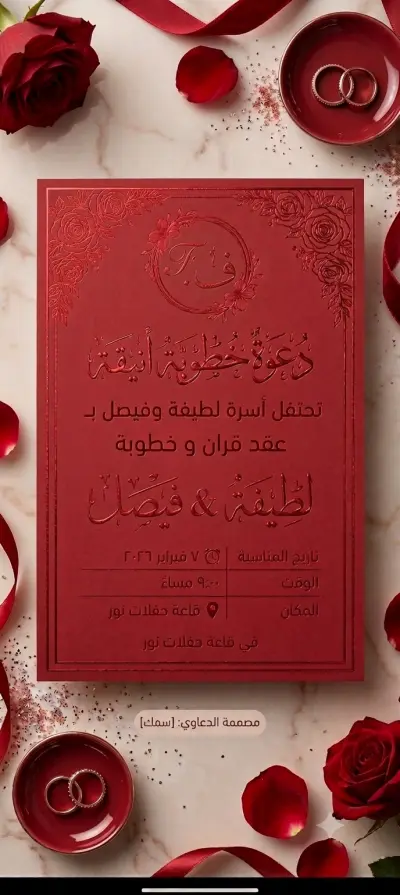 F. ف
دُعوَةُ خُطُوبَةُ أنيقَة
تحتفل أسرة لطيفة وفيصل بـ
عقد قران و خطوبة
لطِيفَة & فيصَل
تاريخ المناسبة ٧ فبراير ٢٠٢٦
الوقت ٩:٠٠ مساءً
المكان قاعة حفلات نور
في قاعة حفلات نور
مصممة الدعاوي: [سمك]